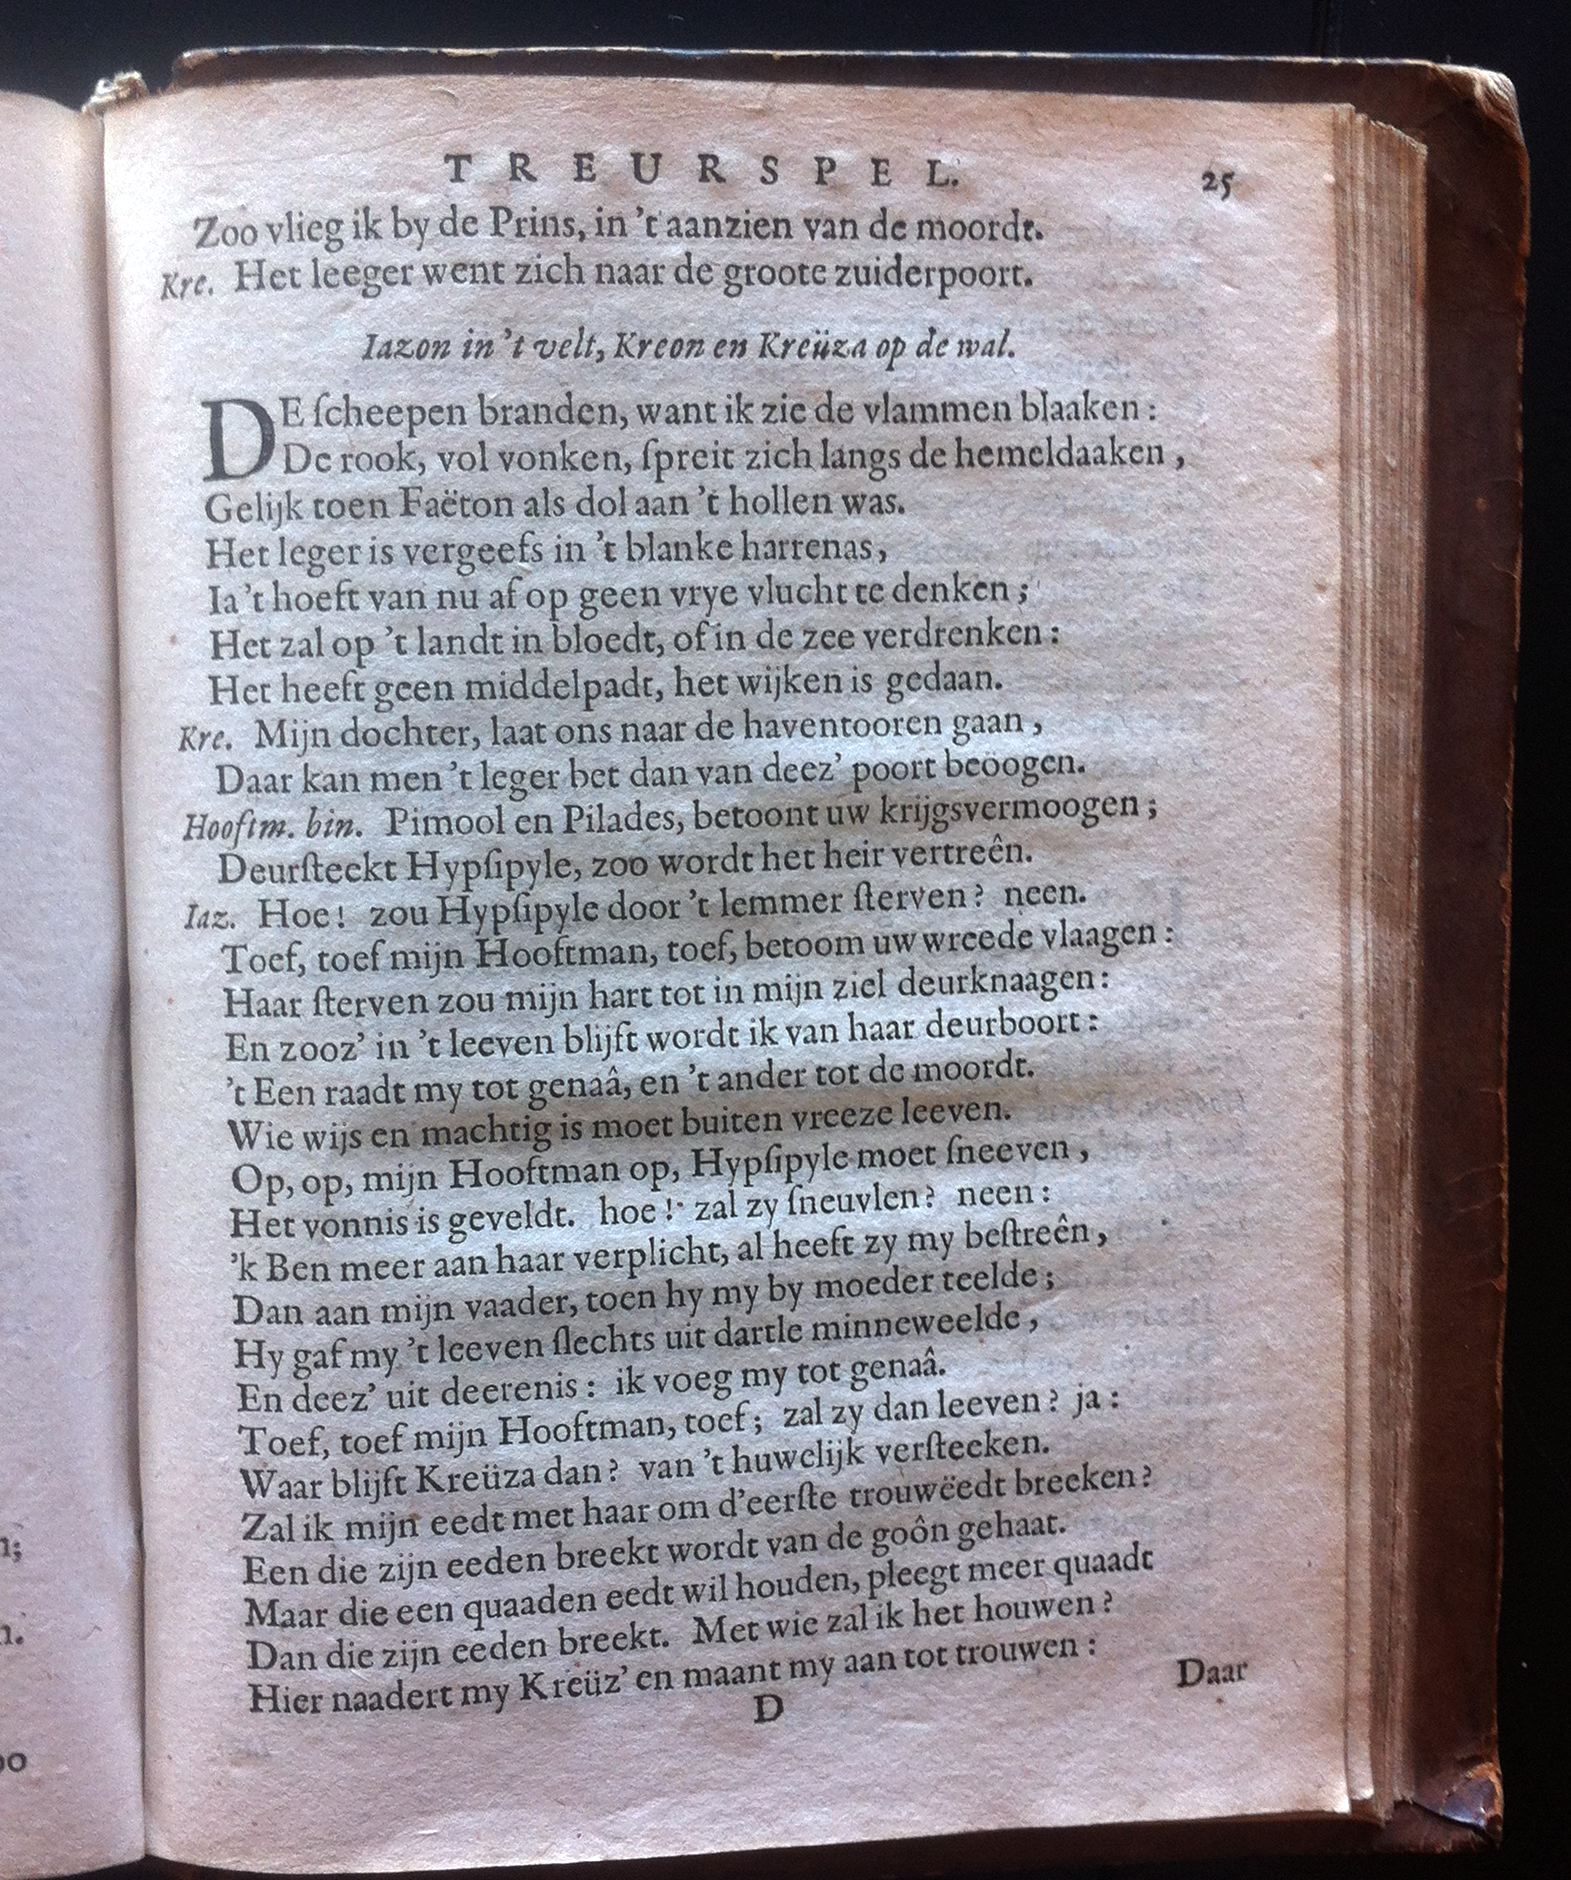 TREURSPEL. 25
Zoo vlieg ik by de Prins, in 't aanzien van de moordt.
Kre. Het leeger went zich naar de groote zuiderpoort.
Iazon in 't velt, Kreon en Kreüza op de wal.
DE ſcheepen branden, want ik zie de vlammen blaaken:
De rook, vol vonken, ſpreit zich langs de hemeldaaken,
Gelijk toen Faëton als dol aan 't hollen was.
Het leger is vergeefs in 't blanke harrenas,
Ia 't hoeft van nu af op geen vrye vlucht te denken;
Het zal op 't landt in bloedt, of in de zee verdrenken:
Het heeft geen middelpadt, het wijken is gedaan.
Kre. Mijn dochter, laat ons naar de haventooren gaan,
Daar kan men 't leger bet dan van deez' poort beöogen.
Hooftm. bin. Pimool en Pilades, betoont uw krijgsvermoogen;
Deurſteekt Hypſipyle, zoo wordt het heir vertreên.
Iaz. Hoe! zou Hypſipyle door 't lemmer ſterven? neen.
Toef, toef mijn Hooftman, toef, betoom uw wreede vlaagen:
Haar ſterven zou mijn hart tot in mijn ziel deurknaagen:
En zooz' in 't leeven blijft wordt ik van haar deurboort:
't Een raadt my tot genaâ, en 't ander tot de moordt.
Wie wijs en machtig is moet buiten vreeze leeven.
Op, op, mijn Hooftman op, Hypſipyle moet ſneeven,
Het vonnis is geveldt. hoe! zal zy ſneuvlen? neen:
'k Ben meer aan haar verplicht, al heeft zy my beſtreên,
Dan aan mijn vaader, toen hy my by moeder teelde;
Hy gaf my 't leeven ſlechts uit dartle minneweelde,
En deez' uit deerenis: ik voeg my tot genaâ.
Toef, toef mijn Hooftman, toef; zal zy dan leeven? ja:
Waar blijft Kreüza dan? van 't huwelijk verſteeken.
Zal ik mijn eedt met haar om d'eerſte trouwëedt breeken?
Een die zijn eeden breekt wordt van de goôn gehaat.
Maar die een quaaden eedt wil houden, pleegt meer quaadt
Dan die zijn eeden breekt. Met wie zal ik het houwen?
Hier naadert my Kreüz' en maant my aan tot trouwen:
D Daar
n;
n.
oo